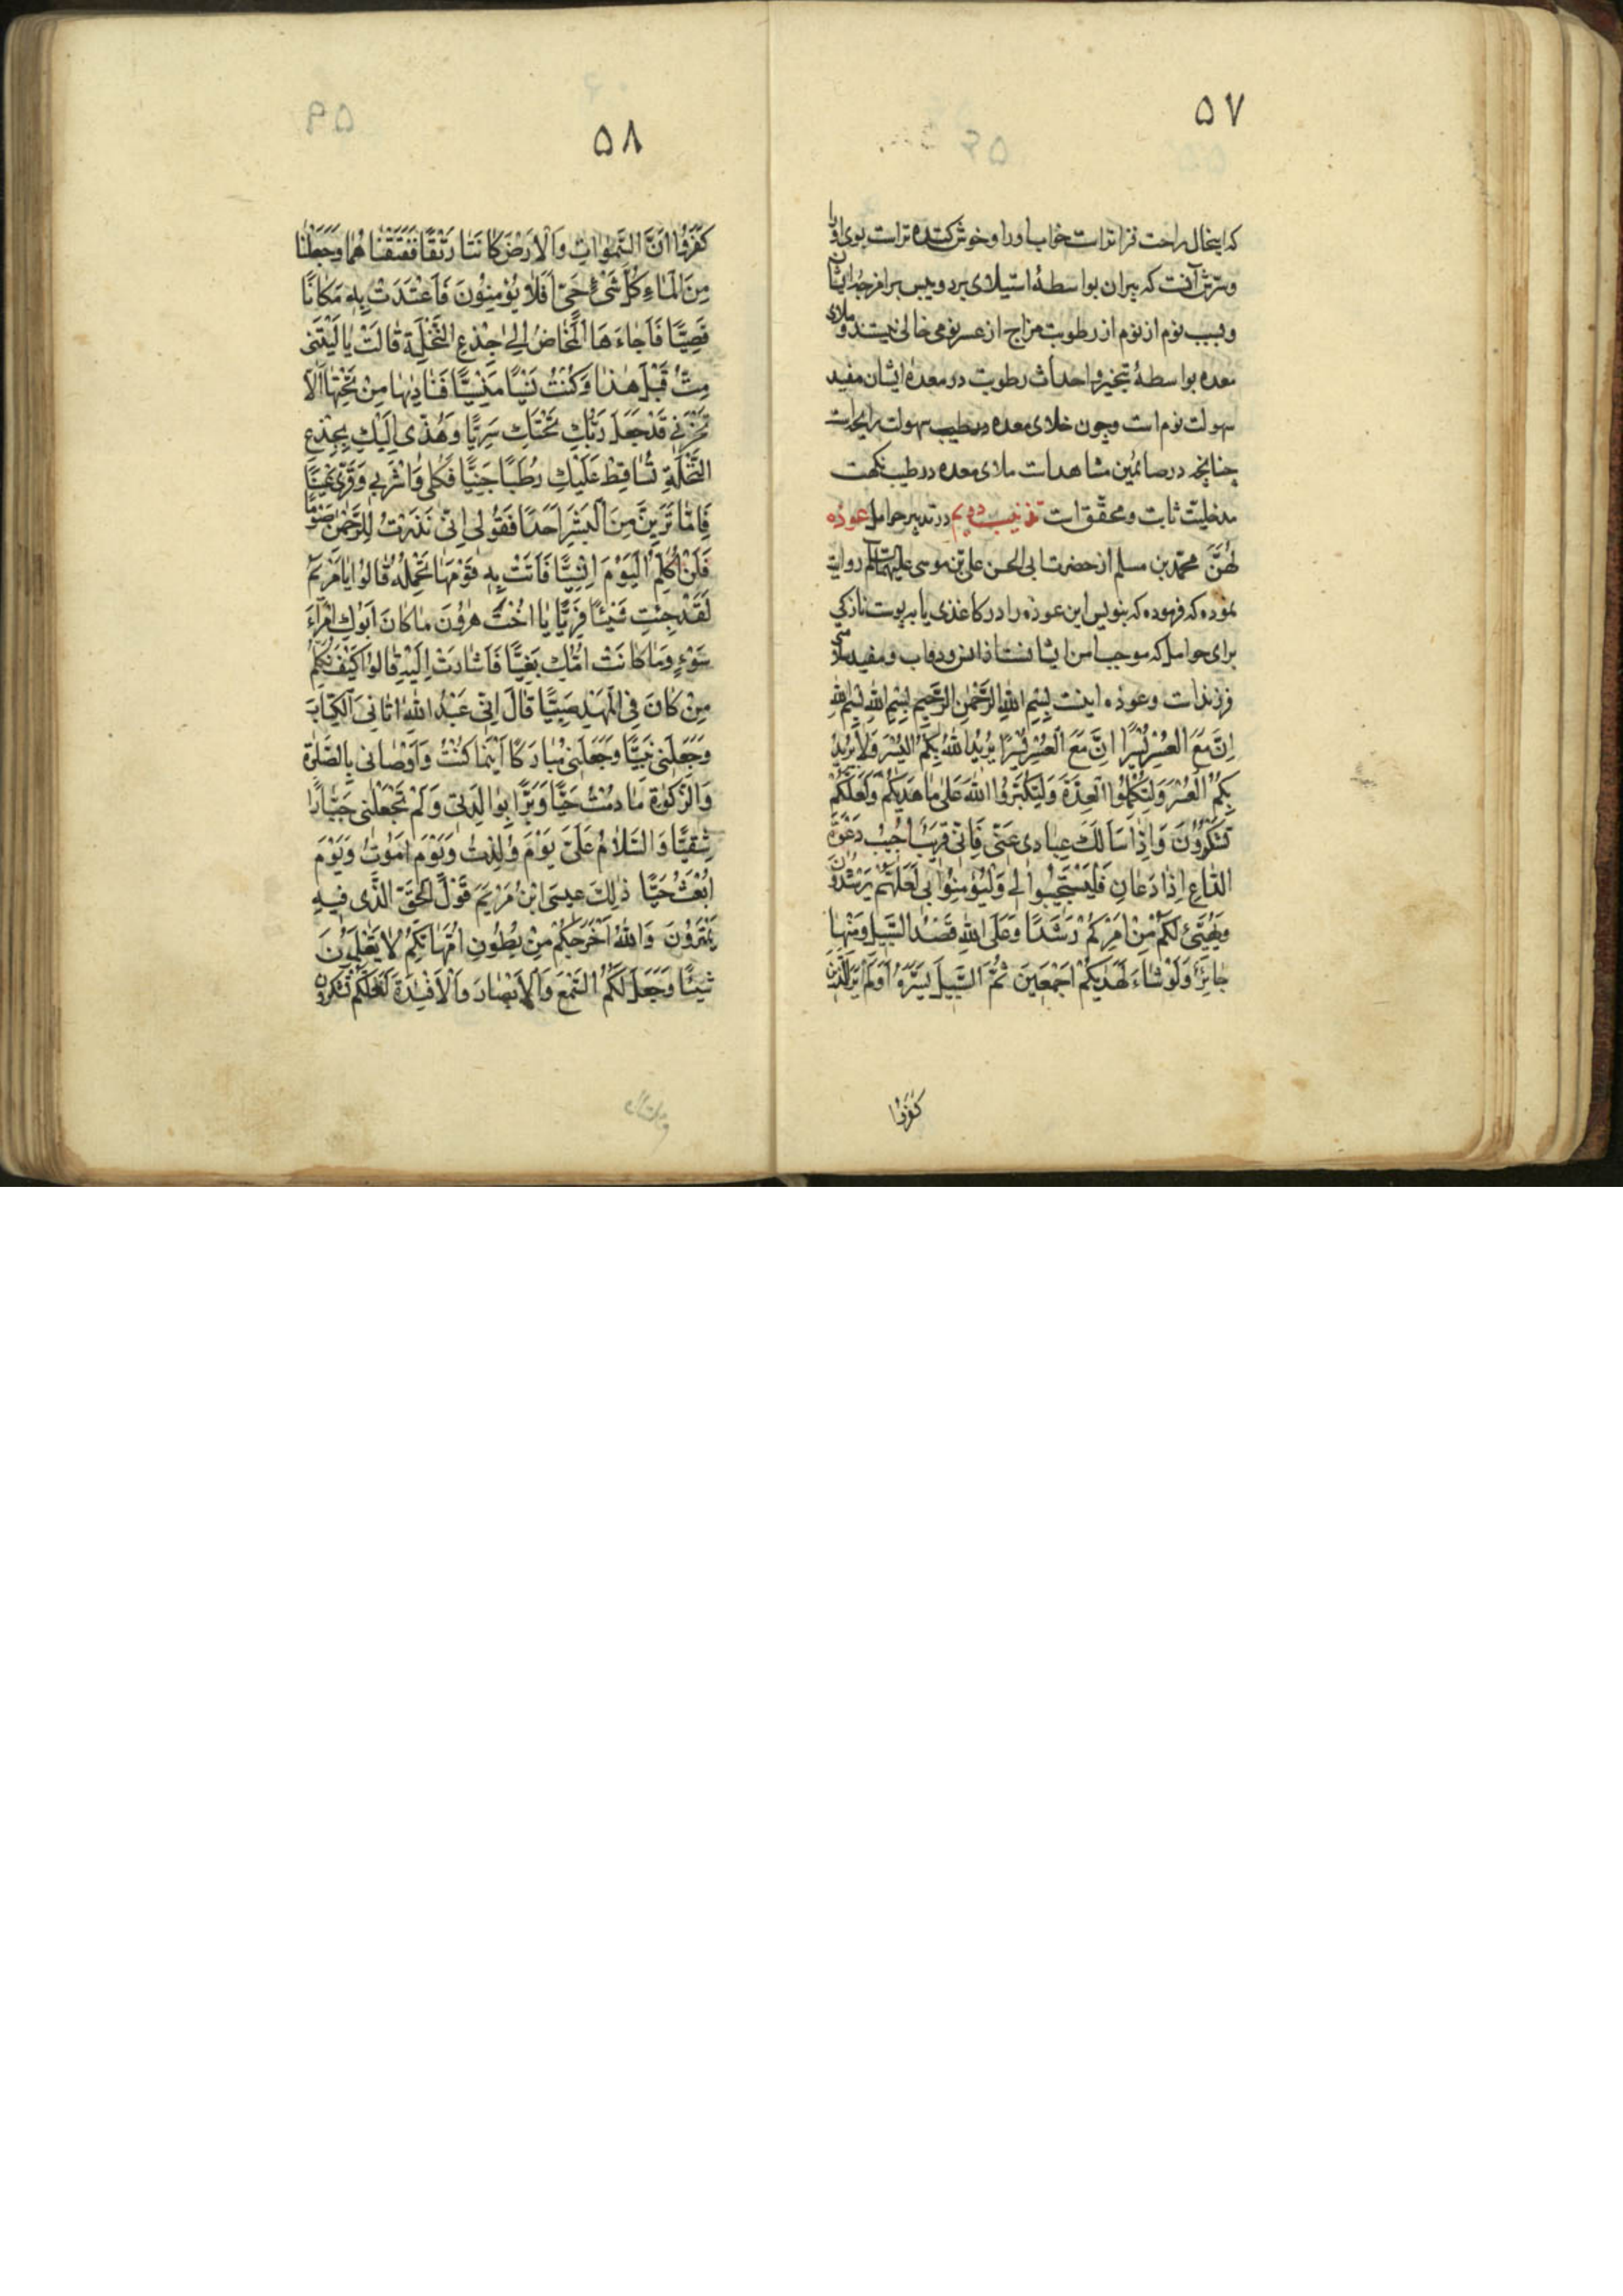 ۵۷
که اینحال راحت فزاتراست خواب اورا وخوش کننده تراست بوی اورا
وسرش آنست که پیران بواسطهٔ استیلای برد ویبس برامزجهٔ ایشان
وبسبب نوم از نوم از رطوبت مزاج از عسر نومی خالی نیستند وملای
معده بواسطهٔ تبخیر واحداث رطوبت در معدهٔ ایشان مفید
سهولت نوم است وچون خلای معده در طیب سهولت
چنانچه در صائمین مشاهد است ملای معده در طیب نکهت
مدخلیت ثابت ومحقق است تذنیب دویم در تدبیر حوامل عوذه
لهنّ محمّد بن مسلم از حضرت ابی الحسن علی بن موسی علیهما السلم روایت
نموده که فرموده که بنویس این عوذه را در کاغذی یا به پوست نازکی
برای حوامل که موجب امن ایشانست از ودواب ومفید
فرزنداست وعوذه اینست بِسْمِ اللهِ الرَّحْمٰنِ الرَّحِیمِ بِسْمِ اللهِ بِسْمِ اللهِ
اِنَّ مَعَ الْعُسْرِ یُسْرًا اِنَّ مَعَ الْعُسْرِ یُسْرًا یُرِیدُ اللهُ بِکُمُ الْیُسْرَ وَلَا یُرِیدُ
بِکُمُ الْعُسْرَ وَلِتُکْمِلُوا الْعِدَّةَ وَلِتُکَبِّرُوا اللهَ عَلٰی مَا هَدٰیکُمْ وَلَعَلَّکُمْ
تَشْکُرُوْنَ وَاِذَا سَاَلَکَ عِبَادِی عَنِّی فَاِنِّی قَرِیْبٌ اُجِیْبُ دَعْوَةَ
الدَّاعِ اِذَا دَعَانِ فَلْیَسْتَجِیْبُوا لِی وَلْیُؤْمِنُوْا بِی لَعَلَّهُمْ یَرْشُدُوْنَ
وَیُهَیِّئْ لَکُمْ مِنْ اَمْرِکُمْ رَشَدًا وَعَلَی اللهِ قَصْدُ السَّبِیْلِ وَمِنْهَا
جَائِرٌ وَلَوْ شَاءَ لَهَدٰیکُمْ اَجْمَعِیْنَ ثُمَّ السَّبِیْلَ یَسَّرَهُ اَوَلَمْ یَرَ الَّذِیْنَ
کَفَرُوْا
۵۸
کَفَرُوْا اَنَّ السَّمٰوَاتِ وَالْاَرْضَ کَانَتَا رَتْقًا فَفَتَقْنَاهُمَا وَجَعَلْنَا
مِنَ الْمَاءِ کُلَّ شَیْءٍ حَیٍّ اَفَلَا یُؤْمِنُوْنَ فَانْتَبَذَتْ بِهٖ مَکَانًا
قَصِیًّا فَاَجَاءَهَا الْمَخَاضُ اِلٰی جِذْعِ النَّخْلَةِ قَالَتْ یَا لَیْتَنِی
مِتُّ قَبْلَ هٰذَا وَکُنْتُ نَسْیًا مَنْسِیًّا فَنَادٰیهَا مِنْ تَحْتِهَا اَلَّا
تَحْزَنِی قَدْ جَعَلَ رَبُّکِ تَحْتَکِ سَرِیًّا وَهُزِّی اِلَیْکِ بِجِذْعِ
النَّخْلَةِ تُسَاقِطْ عَلَیْکِ رُطَبًا جَنِیًّا فَکُلِی وَاشْرَبِی وَقَرِّی عَیْنًا
فَاِمَّا تَرَیِنَّ مِنَ الْبَشَرِ اَحَدًا فَقُوْلِی اِنِّی نَذَرْتُ لِلرَّحْمٰنِ صَوْمًا
فَلَنْ اُکَلِّمَ الْیَوْمَ اِنْسِیًّا فَاَتَتْ بِهٖ قَوْمَهَا تَحْمِلُهُ قَالُوْا یَا مَرْیَمُ
لَقَدْ جِئْتِ شَیْئًا فَرِیًّا یَا اُخْتَ هٰرُوْنَ مَا کَانَ اَبُوْکِ امْرَاَ
سَوْءٍ وَمَا کَانَتْ اُمُّکِ بَغِیًّا فَاَشَارَتْ اِلَیْهِ قَالُوْا کَیْفَ نُکَلِّمُ
مَنْ کَانَ فِی الْمَهْدِ صَبِیًّا قَالَ اِنِّی عَبْدُ اللهِ اٰتَانِیَ الْکِتَابَ
وَجَعَلَنِی نَبِیًّا وَجَعَلَنِی مُبَارَکًا اَیْنَمَا کُنْتُ وَاَوْصَانِی بِالصَّلٰوةِ
وَالزَّکٰوةِ مَا دُمْتُ حَیًّا وَبَرًّا بِوَالِدَتِی وَلَمْ یَجْعَلْنِی جَبَّارًا
شَقِیًّا وَالسَّلَامُ عَلَیَّ یَوْمَ وُلِدْتُ وَیَوْمَ اَمُوْتُ وَیَوْمَ
اُبْعَثُ حَیًّا ذٰلِکَ عِیسَی ابْنُ مَرْیَمَ قَوْلَ الْحَقِّ الَّذِی فِیهِ
یَمْتَرُوْنَ وَاللهُ اَخْرَجَکُمْ مِنْ بُطُوْنِ اُمَّهَاتِکُمْ لَا تَعْلَمُوْنَ
شَیْئًا وَجَعَلَ لَکُمُ السَّمْعَ وَالْاَبْصَارَ وَالْاَفْئِدَةَ لَعَلَّکُمْ تَشْکُرُوْنَ